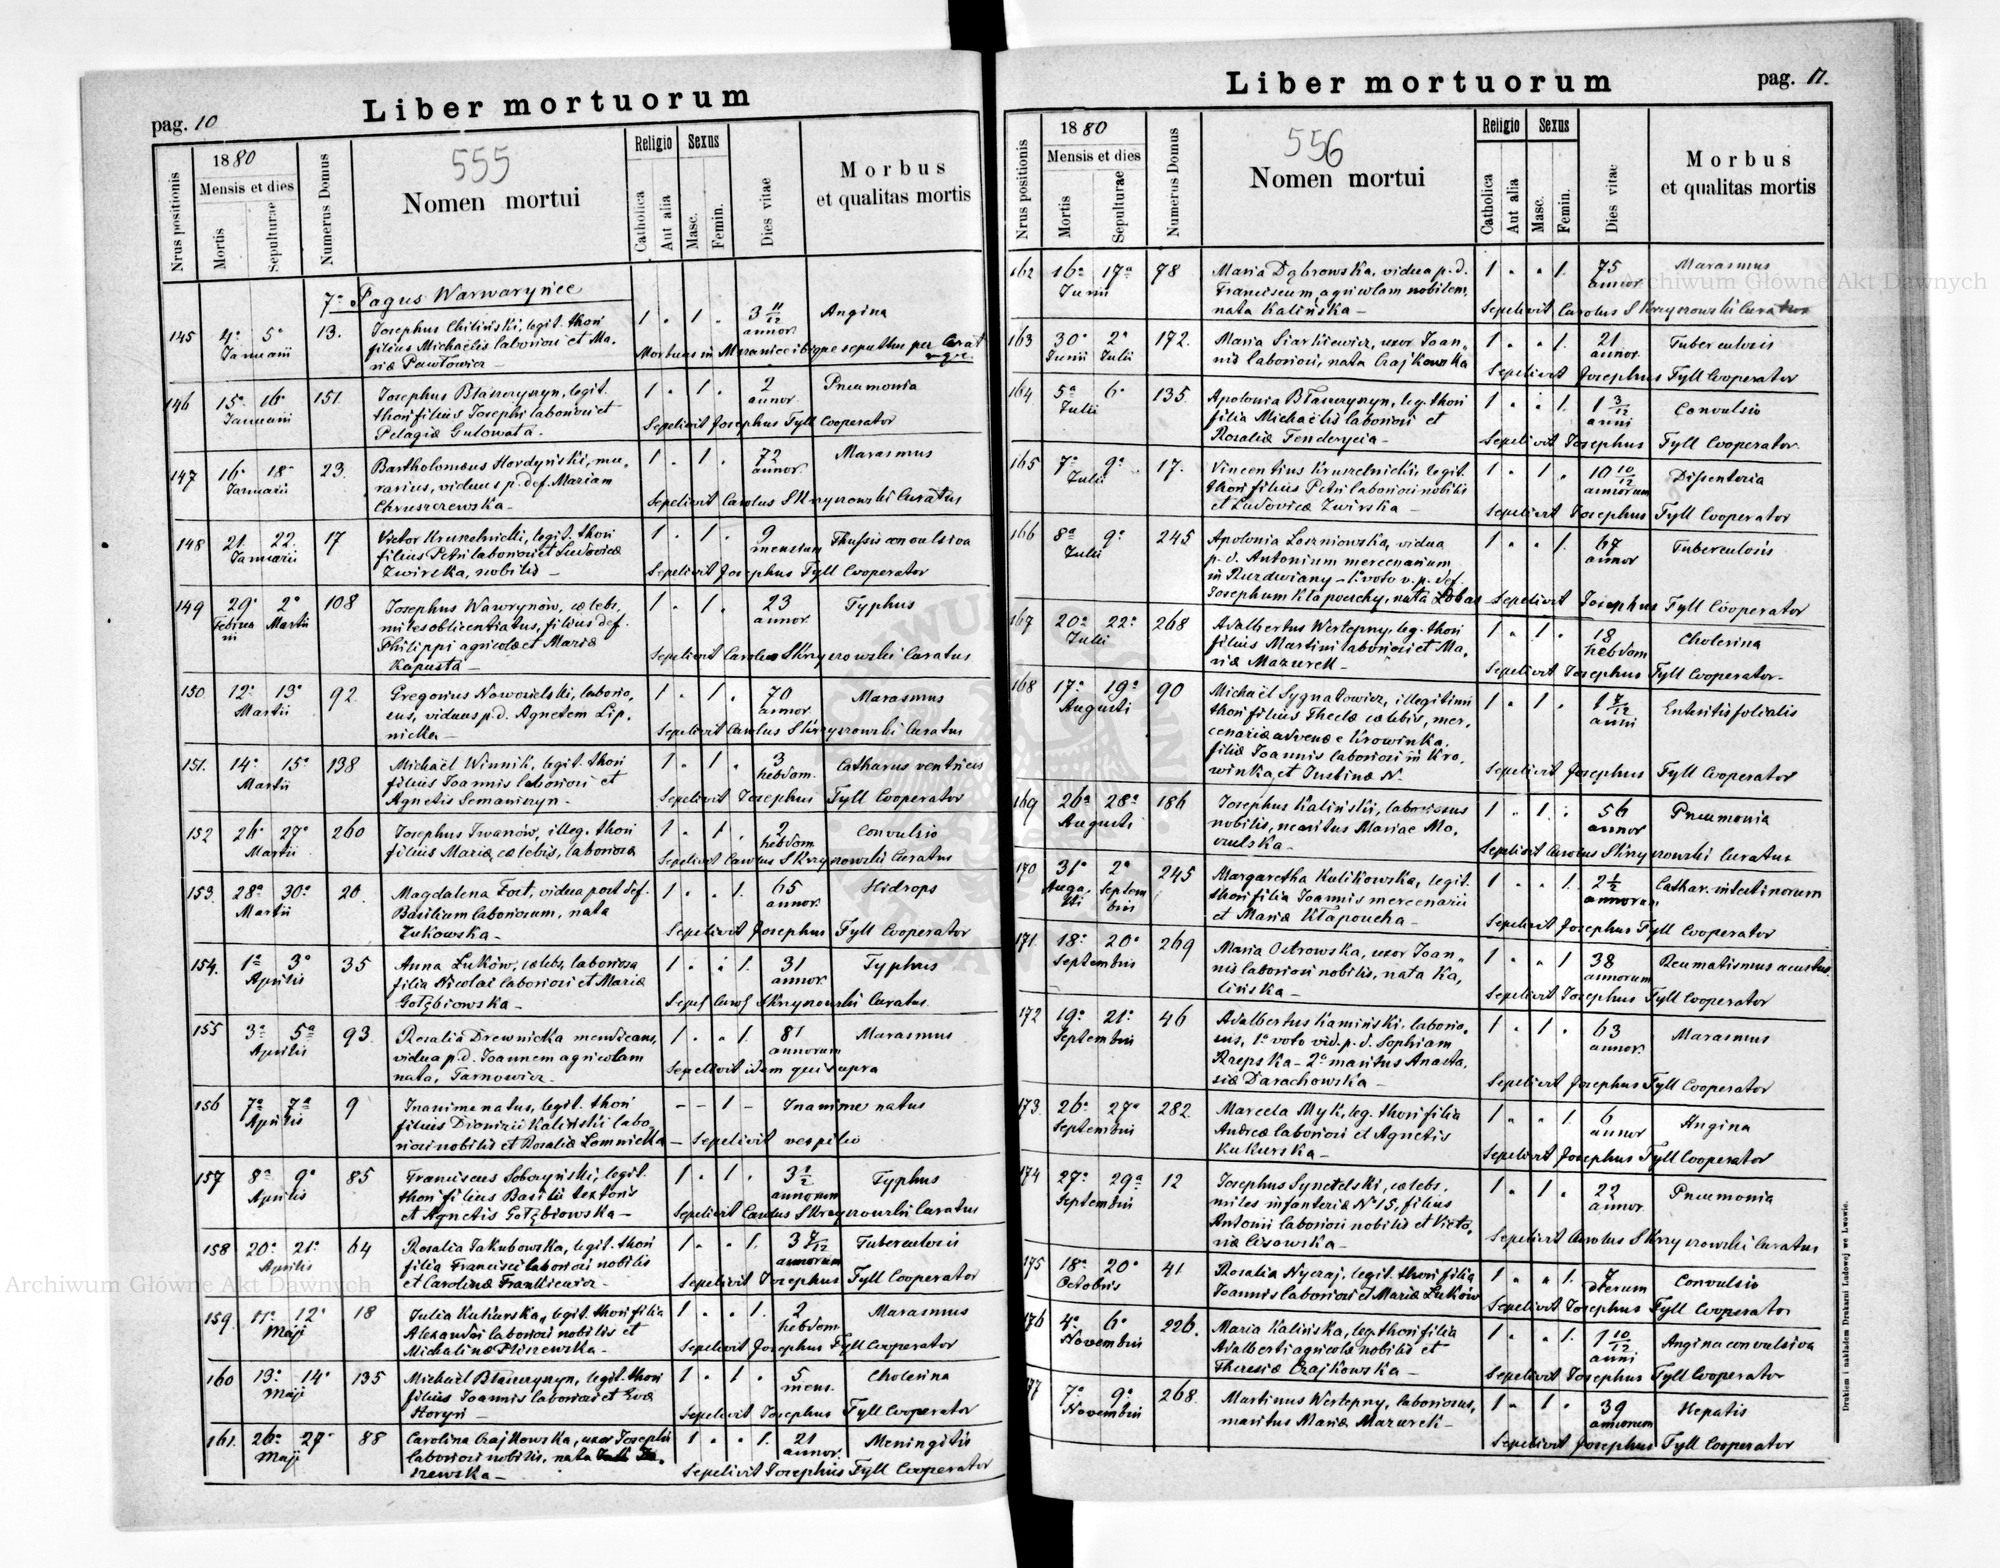 Liber mortuorum
pag. 10
1880
555
Nrus positionis
Mensis et dies
Mortis
Sepulturae
Numerus Domus
Nomen mortui
Religio
Catholica
Aut alia
Sexus
Masc.
Femin.
Dies vitae
Morbus
et qualitas mortis
7° Pagus Warwaryńce
145 4° 5° Januarii 13. 1 " 1 " 3 11/12 annor. Angina
Josephus Chiliński, legit. thori
filius Michaëlis laboriosi et Ma-
riæ Pawłowicz
146 15° 16° Januarii 151. 1 " 1 " 2 annor. Pneumonia
Josephus Błaszczyszyn, legit.
thori filius Josephi laboriosi et
Pelagiæ Gulowata.
Sepelivit Josephus Tyll Cooperator
147 16° 18° Januarii 23. 1 " 1 " 72 annor. Marasmus
Bartholomæus Hordyński, mu-
rarius, viduus p. def. Mariam
Chruszczewska
Sepelivit Carolus Skrzyszowski Curatus
148 21. 22. Januarii 17 1 " 1 " 9 mensium Thussis convulsiva
Victor Kruszelnicki, legit. thori
filius Petri laboriosi et Ludovicæ
Zwirska, nobilis
Sepelivit Josephus Tyll Cooperator
149 29° Februarii 2° Martii 108 1 " 1 " 23 annor. Typhus
Josephus Wawrynów, cælebs,
miles oblicentiatus, filius def.
Philippi agricolæ et Mariæ
Kapusta
Sepelivit Carolus Skrzyszowski Curatus
150 12° 13° Martii 92 1 " 1 " 70 annor. Marasmus
Gregorius Nowosielski, laborio-
sus, viduus p. d. Agnetem Lip-
nicka
Sepelivit Carolus Skrzyszowski Curatus
151. 14° 15° Martii 138 1 " 1 " 3 hebdom. Catharus ventriculi
Michaël Winnik, legit. thori
filius Joannis laboriosi et
Agnetis Semaniszyn.
Sepelivit Josephus Tyll Cooperator
152 26° 27° Martii 260 1 " 1 " 2 hebdom Convulsio
Josephus Iwanów, illeg. thori
filius Mariæ cælebis, laboriosæ
Sepelivit Carolus Skrzyszowski Curatus
153. 28ª 30° Martii 20. 1 " " 1. 65 annor. Hidrops
Magdalena Foct, vidua post def.
Basilium laboriosum, nata
Zukowska
Sepelivit Josephus Tyll Cooperator
154. 1ª 3° Aprilis 35 1 " " 1. 31 annor. Typhus
Anna Łuków, cælebs, laboriosa
filia Nicolai laboriosi et Mariæ
Gołębiowska
155 3ª 5ª Aprilis 93. 1 " " 1. 81 annorum Marasmus
Rosalia Drewnicka mendicans,
vidua p. d. Joannem agricolam
nata, Tarnowicz
Sepelivit idem qui supra
156 7ª 7ª Aprilis 9 - - 1 - Inanime natus
Inanime natus, legit. thori
filius Dionizii Kaliński labo-
riosi nobilis et Rosaliæ Łomnicka
Sepelivit vespillo
157 8ª 9° Aprilis 85 1 " 1 " 3 1/2 annorum Typhus
Franciscus Soboryński, legit.
thori filius Basilii textoris
et Agnetis Gołębiowska
Sepelivit Carolus Skrzyszowski Curatus
158 20° 21° Aprilis 64 1 " " 1. 3 7/12 annorum Tuberculosis
Rosalia Jakubowska, legit. thori
filia Francisci laboriosi nobilis
et Carolinæ Frankiewicz
Sepelivit Josephus Tyll Cooperator
159. 11° 12° Maji 18 1 " " 1. 2 hebdom Marasmus
Julia Kukurska, legit. thori filia
Alexandri laboriosi nobilis et
Michalinæ Pliszewska
Sepelivit Josephus Tyll Cooperator
160 13° 14° Maji 135 1 " 1 " 5 mens. Cholerina
Michaël Błaszczyszyn, legit. thori
filius Joannis laboriosi et Evæ
Horyń
Sepelivit Josephus Tyll Cooperator
161. 26° 27° Maji 88 1 " " 1. 21 annor. Meningitis
Carolina Czajkowska, uxor Josephi
laboriosi nobilis, nata
szewska
Sepelivit Josephus Tyll Cooperator
Liber mortuorum
pag. 11.
1880
556
Nrus positionis
Mensis et dies
Mortis
Sepulturae
Numerus Domus
Nomen mortui
Religio
Catholica
Aut alia
Sexus
Masc.
Femin.
Dies vitae
Morbus
et qualitas mortis
162 16° 17ª Junii 78 1 " " 1. 75 annor. Marasmus
Maria Dąbrowska, vidua p. d.
Franciscum agricolam nobilem,
nata Kalińska
Sepelivit Carolus Skrzyszowski Curatus
163 30° Junii 2° Julii 172. 1 " " 1. 21 annor. Tuberculosis
Maria Siarkiewicz, uxor Joan-
nis laboriosi, nata Czajkowska
Sepelivit Josephus Tyll Cooperator
164. 5ª 6° Julii 135. 1 " " 1. 1 3/12 anni Convulsio
Apolonia Błaszczyszyn, leg. thori
filia Michaëlis laboriosi et
Rosaliæ Fenderycia
Sepelivit Josephus Tyll Cooperator.
165 7° 9° Julii 17. 1 " 1 " 10 10/12 annorum Dissenteria
Vincentius Kruszelnicki, legit.
thori filius Petri laboriosi nobilis
et Ludovicæ Zwirska
Sepelivit Josephus Tyll Cooperator
166 8ª 9° Julii 245 1 " " 1. 67 annor Tuberculosis
Apolonia Leszniowska, vidua
p. d. Antonium mercenarium
in Ruzdwiany - 1° voto v. p. def.
Josephum Kłapouchy, nata Łobas
Sepelivit Josephus Tyll Cooperator
167 20ª 22° Julii 268 1 " 1 " 18 hebdom Cholerina
Adalbertus Wertepny, leg. thori
filius Martini laboriosi et Ma-
riæ Mazurek
Sepelivit Josephus Tyll Cooperator
168 17° 19° Augusti 90 1 " 1 " 1 7/12 anni Enteritis folialis
Michaël Sygnatowicz, illegitimi
thori filius Theclæ cælebis, mer-
cenariæ advenæ e Krowinka,
filiæ Joannis laboriosi in Kro-
winka, et Justinæ N.
Sepelivit Josephus Tyll Cooperator
169 26ª 28ª Augusti 186 1 " 1 " 56 annor Pneumonia
Josephus Kaliński, laboriosus
nobilis, maritus Mariae Mo-
Sepelivit Carolus Skrzyszowski Curatus
170 31° Augusti 2° Septembris 245 1 " " 1. 2 1/2 annorum Cathar. intestinorum
Margaretha Kulikowska, legit.
thori filia Joannis mercenarii
et Mariæ Kłapoucha
Sepelivit Josephus Tyll Cooperator
171. 18° 20° Septembris 269 1 " " 1 38 annorum Reumatismus acustus.
Maria Ostrowska, uxor Joan-
nis laboriosi nobilis, nata Ka-
lińska
Sepelivit Josephus Tyll Cooperator
172 19° 21° Septembris 46 1 " 1 " 63 annor. Marasmus
Adalbertus Kamiński, laborio-
sus, 1° voto vid. p. d. Sophiam
Rzepska - 2° maritus Anasta-
siæ Darachowska
Sepelivit Josephus Tyll Cooperator
173. 26° 27° Septembris 282 1 " " 1. 6 annor Angina
Marcela Myk, leg. thori filia
Andreæ laboriosi et Agnetis
Kukurska
Sepelivit Josephus Tyll Cooperator
174 27° 29ª Septembris 12 1 " 1 " 22 annor. Pneumonia
Josephus Synetelski, cælebs,
miles infanteriæ N° 15, filius
Antonii laboriosi nobilis et Victo-
riæ Lisowska
Sepelivit Carolus Skrzyszowski Curatus
175 18° 20° Octobris 41 1 " " 1. 7 dierum Convulsio
Rosalia Nyczaj, legit. thori filia
Joannis laboriosi et Mariæ Łuków
Sepelivit Josephus Tyll Cooperator
176 4° 6° Novembris 226. 1 " " 1. 1 10/12 anni Angina convulsiva
Maria Kalińska, leg. thori filia
Adalberti agricolæ nobilis et
Theresiæ Czajkowska
Sepelivit Josephus Tyll Cooperator
177 7° 9° Novembris 268. 1 " 1 " 39 annorum Hepatis
Martinus Wertepny, laboriosus,
maritus Mariæ Mazurek
Sepelivit Josephus Tyll Cooperator
Drukiem i nakładem Drukarni Ludowej we Lwowie.
Archiwum Główne Akt Dawnych
Archiwum Główne Akt Dawnych